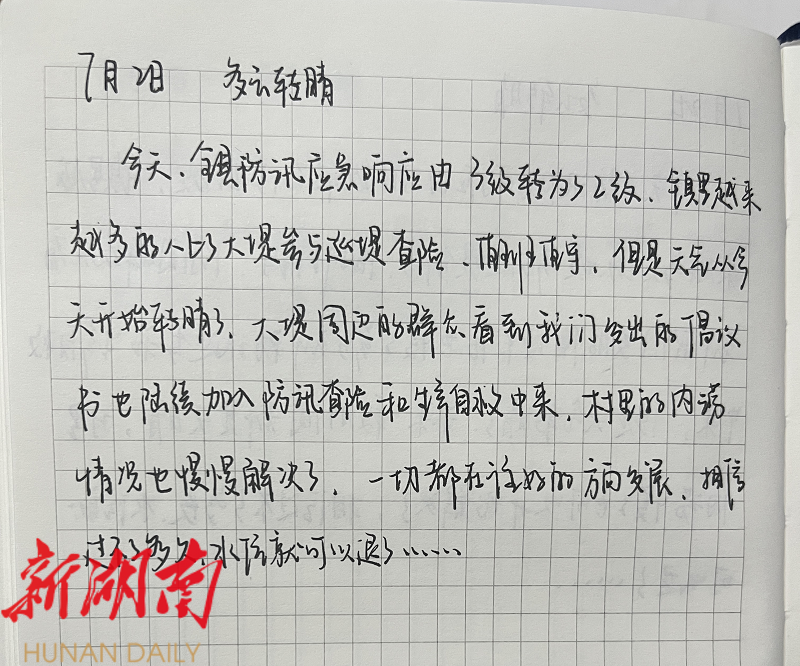 7月2日 多云转晴
今天，全县防讯应急响应由3级转为了2级，镇里越来
越多的人上了大堤参与巡堤查险、值班值守，但是天气从今
天开始转晴了，大堤周边的群众看到我们发出的倡议
书也陆续加入防讯查险和生产自救中来，村里的内涝
情况也慢慢解决了，一切都在往好的方向发展，相信
过不了多久，水位就可以退了……
新湖南
HUNAN DAILY